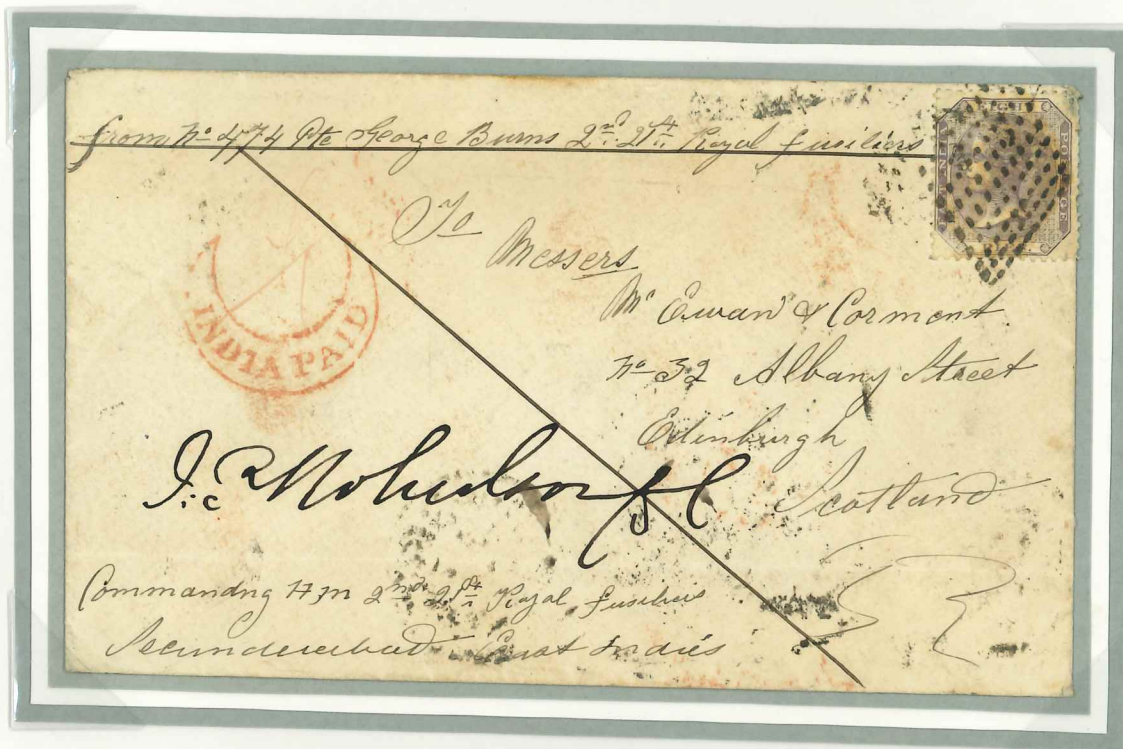 from No 474 Pte George Burns 2nd 21st Royal fusiliers
To
Messers
Mc Ewan & Cormont
No 32 Albany Street
Edinburgh
Scotland
INDIA PAID
EIGHT
POSTAGE
Commandng H M 2nd 21st Royal fusiliers
Secunderabad East Indies